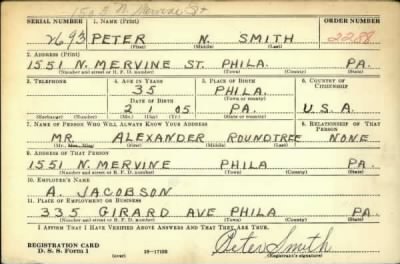 1505 N. Mervine St
SERIAL NUMBER 1. NAME (Print) ORDER NUMBER
2693 PETER N. SMITH 2288
(First) (Middle) (Last)
2. ADDRESS (Print)
1551 N. MERVINE ST. PHILA. PA.
(Number and street or R. F. D. number) (Town) (County) (State)
3. TELEPHONE 4. AGE IN YEARS 5. PLACE OF BIRTH 6. COUNTRY OF CITIZENSHIP
35 PHILA.
DATE OF BIRTH (Town or county)
2 1 05 PA. U.S.A.
(Exchange) (Number) (Mo.) (Day) (Yr.) (State or country)
7. NAME OF PERSON WHO WILL ALWAYS KNOW YOUR ADDRESS 8. RELATIONSHIP OF THAT PERSON
MR. ALEXANDER ROUNDTREE NONE
(Mr., Mrs., Miss) (First) (Middle) (Last)
9. ADDRESS OF THAT PERSON
1551 N. MERVINE PHILA PA.
(Number and street or R. F. D. number) (Town) (County) (State)
10. EMPLOYER'S NAME
A. JACOBSON
11. PLACE OF EMPLOYMENT OR BUSINESS
335 GIRARD AVE PHILA PA.
(Number and street or R. F. D. number) (Town) (County) (State)
I AFFIRM THAT I HAVE VERIFIED ABOVE ANSWERS AND THAT THEY ARE TRUE.
Peter Smith
REGISTRATION CARD
D. S. S. Form 1 (over) (Registrant's signature)